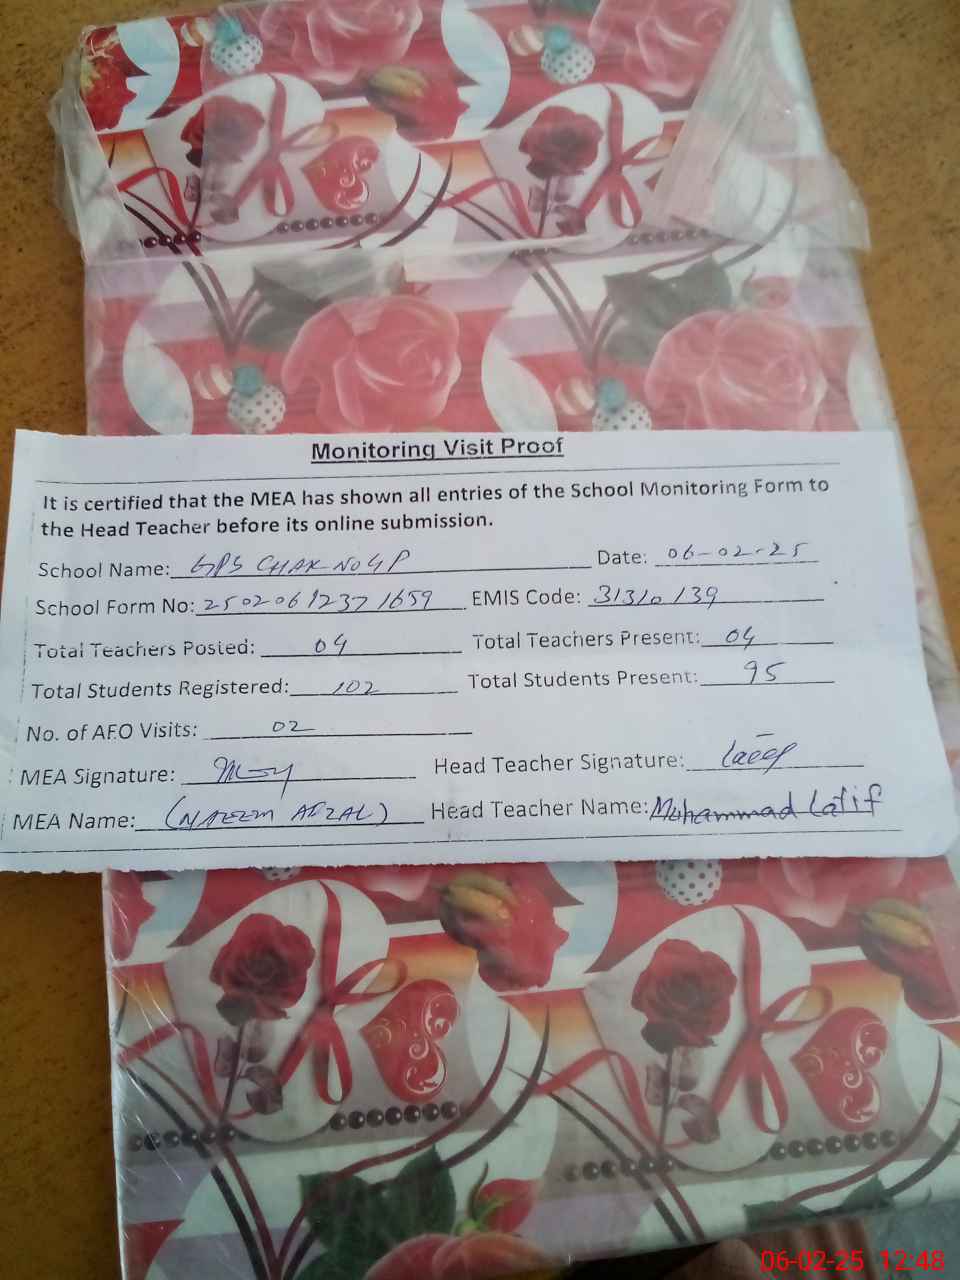 Monitoring Visit Proof
It is certified that the MEA has shown all entries of the School Monitoring Form to
the Head Teacher before its online submission.
School Name: GPS CHAK NO 4 P Date: 06-02-25
School Form No: 25020612371659 EMIS Code: 31310139
Total Teachers Posted: 04 Total Teachers Present: 04
Total Students Registered: 102 Total Students Present: 95
No. of AEO Visits: 02
MEA Signature: Head Teacher Signature:
MEA Name: (NAEEM AFZAL) Head Teacher Name: Muhammad Latif
06-02-25 12:48